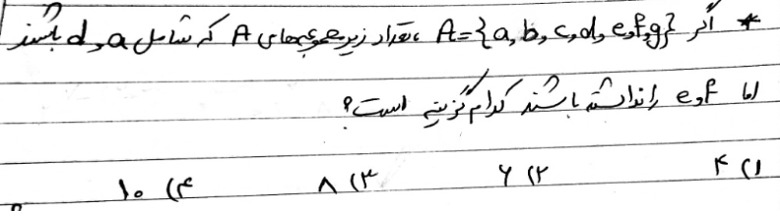 * اگر A={a,b,c,d,e,f,g} ، تعداد زیرمجموعه‌های A که شامل a و d باشند
اما e و f را نداشته باشند کدام گزینه است؟
۱) ۴ ۲) ۶ ۳) ۸ ۴) ۱۰